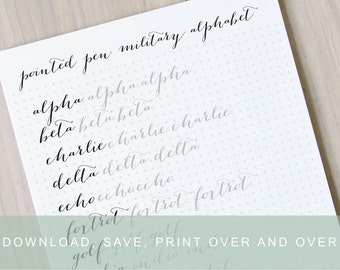 pointed pen military alphabet
alpha alpha alpha
beta beta beta
charlie charlie charlie
delta delta delta
echo echo echo
foxtrot foxtrot foxtrot
golf golf golf
DOWNLOAD, SAVE, PRINT OVER AND OVER